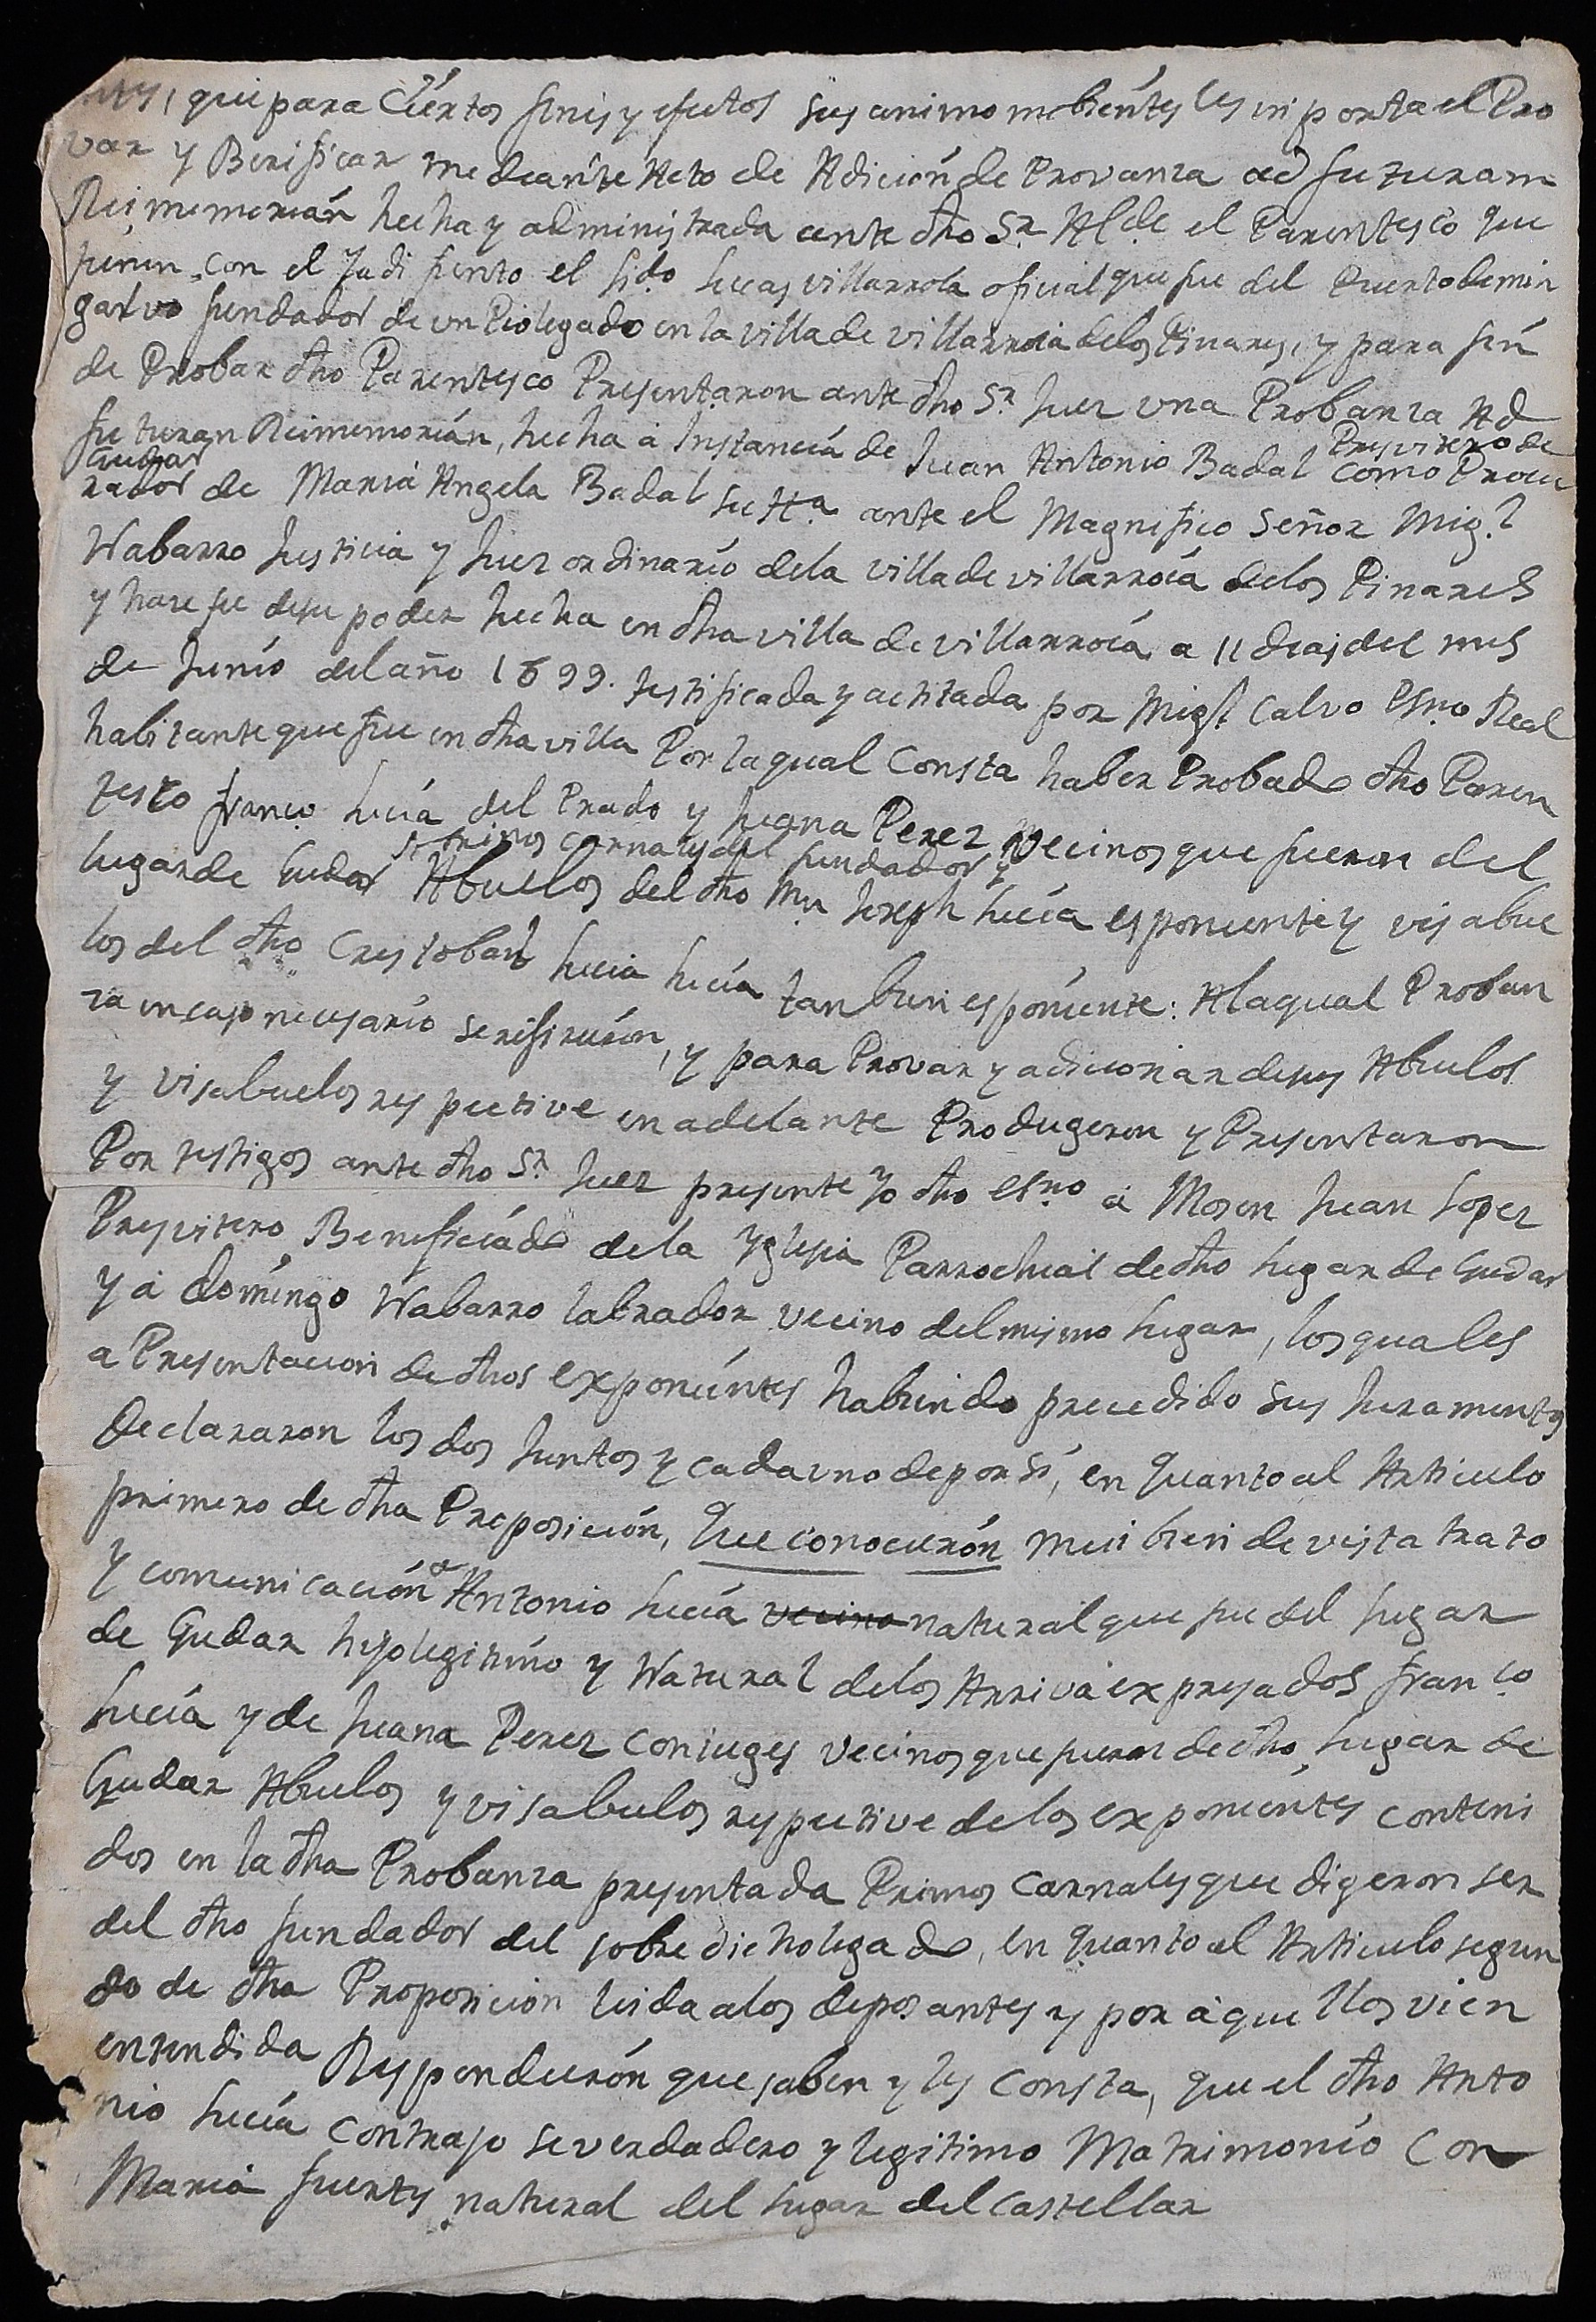 que para Ciertos fines y efectos sus animo mobientes les inporta el Pro
var y Berificar mediante Acto de Adición de Provanza ad futuram
Rei memorian hecha y administrada ante dho Sr. Alde. el Parentesco que
tienen con el ya di funto el Lido. Lucas villarroia oficial que fue del Puertodemin
galvo fundador de un Piolegado en la villa de villarroia delos Pinares, y para fin
de Probar dho Parentesco Presentaron ante dho Sr. Juez una Probanza Ad
futuran Reimemorian, hecha á Instancia de Juan Antonio Badal Presvitero de
Gudar como Procu
rador de Maria Angela Badal su Ha. ante el Magnifico Señor Migl.
Nabarro Justicia y Juez ordinario dela villa de villarroia delos Pinares
y haze fe desu poder hecha en dha villa de villarroia a 11 dias del mes
de Junio del año 1699. testificada y actitada por Migl. Calvo Esno. Real
habitante que fue en dha villa Por la qual Consta haber Probado dho Paren
tesco franco. Lucia del Prado y Juana Perez Vecinos que fueron del
sobrinos carnales del fundador y
lugar de Gudar Abuelos del dho Mn Joseph Lucia esponente y visabue
los del dho Cristobal Lucia Lucia tanbien esponiente: Alaqual Proban
za en caso necesario se refirieron, y para Provar y adicionar desus Abuelos
y visabuelos respective en adelante Produgeron y Presentaron
Por testigos ante dho Sr. Juez presente Yo dho esno á Mosen Juan Lopez
Presvitero Beneficiado dela Yglesia Parrochial de dho lugar de Gudar
y á domingo Nabarro labrador vecino del mismo lugar, los quales
a Presentacion de dhos exponientes habiendo precedido sus Juramentos
Declararon los dos Juntos y cada uno de por sí, en quanto al Articulo
primero de dha Preposición, Que conocierón mui bien de vista trato
y comunicación a Antonio Lucia vecino natural que fue del lugar
de Gudar hijo legitimo y Natural delos Arriva expresados franco.
Lucia y de Juana Perez coniuges vecinos que fueron de dho lugar de
Gudar Abuelos y visabuelos respective delos exponientes conteni
dos en la dha Probanza presentada Primos carnales que digeron ser
del dho fundador del sobre dicho legado, en quanto al Articulo segun
do de dha Proposicion leida alos deposantes y por aquellos vien
entendida Respondierón que saben y les consta, que el dho Anto
nio Lucia contrajo su verdadero y legitimo Matrimonio Con
Maria fuertes natural del lugar del Castellar